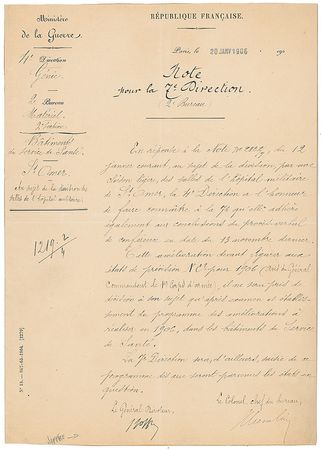 Ministère
de la Guerre.
4e Direction
Génie
2e Bureau
Matériel
2e Section
Bâtiments
du Service de Santé.
St Omer
Au sujet de la
salles de l'Hôpital militaire.
1219-2/4
N° 15. — 867-63-1904. [1279]
RÉPUBLIQUE FRANÇAISE.
Paris, le 20 JANV 1906 190
Note
pour la 7e Direction.
(2e Bureau)
En réponse à la Note N° du 12
janvier courant, au sujet de la division, par une
cloison légère, des salles de l'Hôpital militaire
de St Omer, la 4e Direction a l'honneur
de faire connaître à la 7e qu'elle adhère
également aux conclusions du procès-verbal
de conférence en date du 13 novembre dernier.
Cette amélioration devant figurer aux
états de prévision N° pour 1906 (avis du Général
Commandant le 1er Corps d'armée), il ne sera pris de
décision à son sujet qu'après examen et établisse-
ment du programme des améliorations à
réaliser en 1906, dans les bâtiments du Service
de Santé.
La 7e Direction sera, d'ailleurs, saisie de ce
programme dès que seront parvenus les états en
question.
Le Général Directeur,
Le Colonel Chef du bureau,